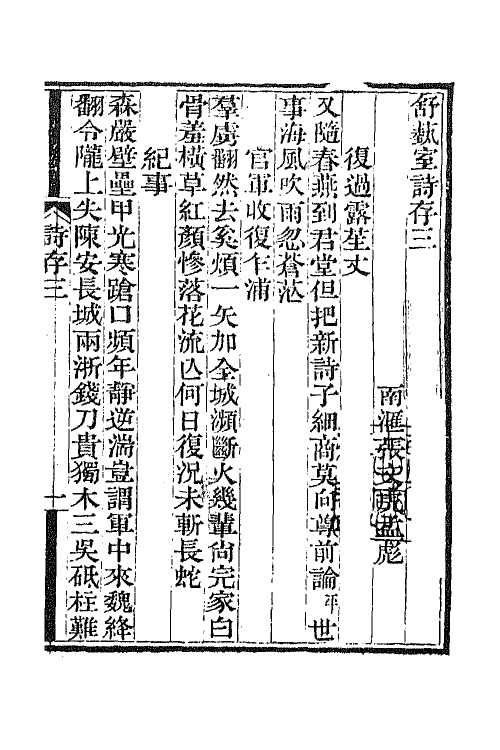 舒蓺室詩存三
南滙張文虎孟彪
復過露荃丈
又隨春燕到君堂但把新詩子細商莫向尊前論平世
事海風吹雨忽蒼茫
官軍收復乍浦
羣虜翻然去奚煩一矢加全城瀕斷火幾輩尙完家白
骨羞橫草紅顏慘落花流亾何日復況未斬長蛇
紀事
森嚴壁壘甲光寒蹌口頻年靜逆湍豈謂軍中來魏絳
翻令隴上失陳安長城兩浙錢刀貴獨木三吳砥柱難
詩存三
一